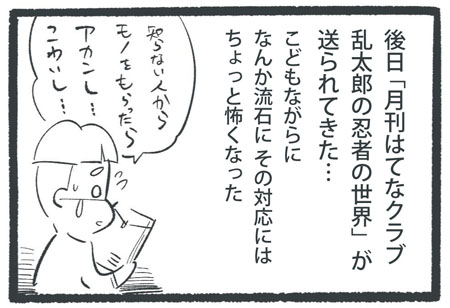 後日「月刊はてなクラブ
乱太郎の忍者の世界」が
送られてきた…
こどもながらに
なんか流石に その対応には
ちょっと怖くなった
知らない人から
モノをもらったら
アカンし…
こわいし…